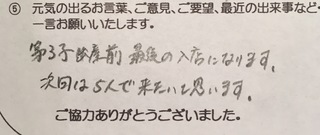 ⑤ 元気の出るお言葉、ご意見、ご要望、最近の出来事など・
一言お願いいたします。
第3子出産前 最後の入店になります。
次回は5人で来たいと思います。
ご協力ありがとうございました。